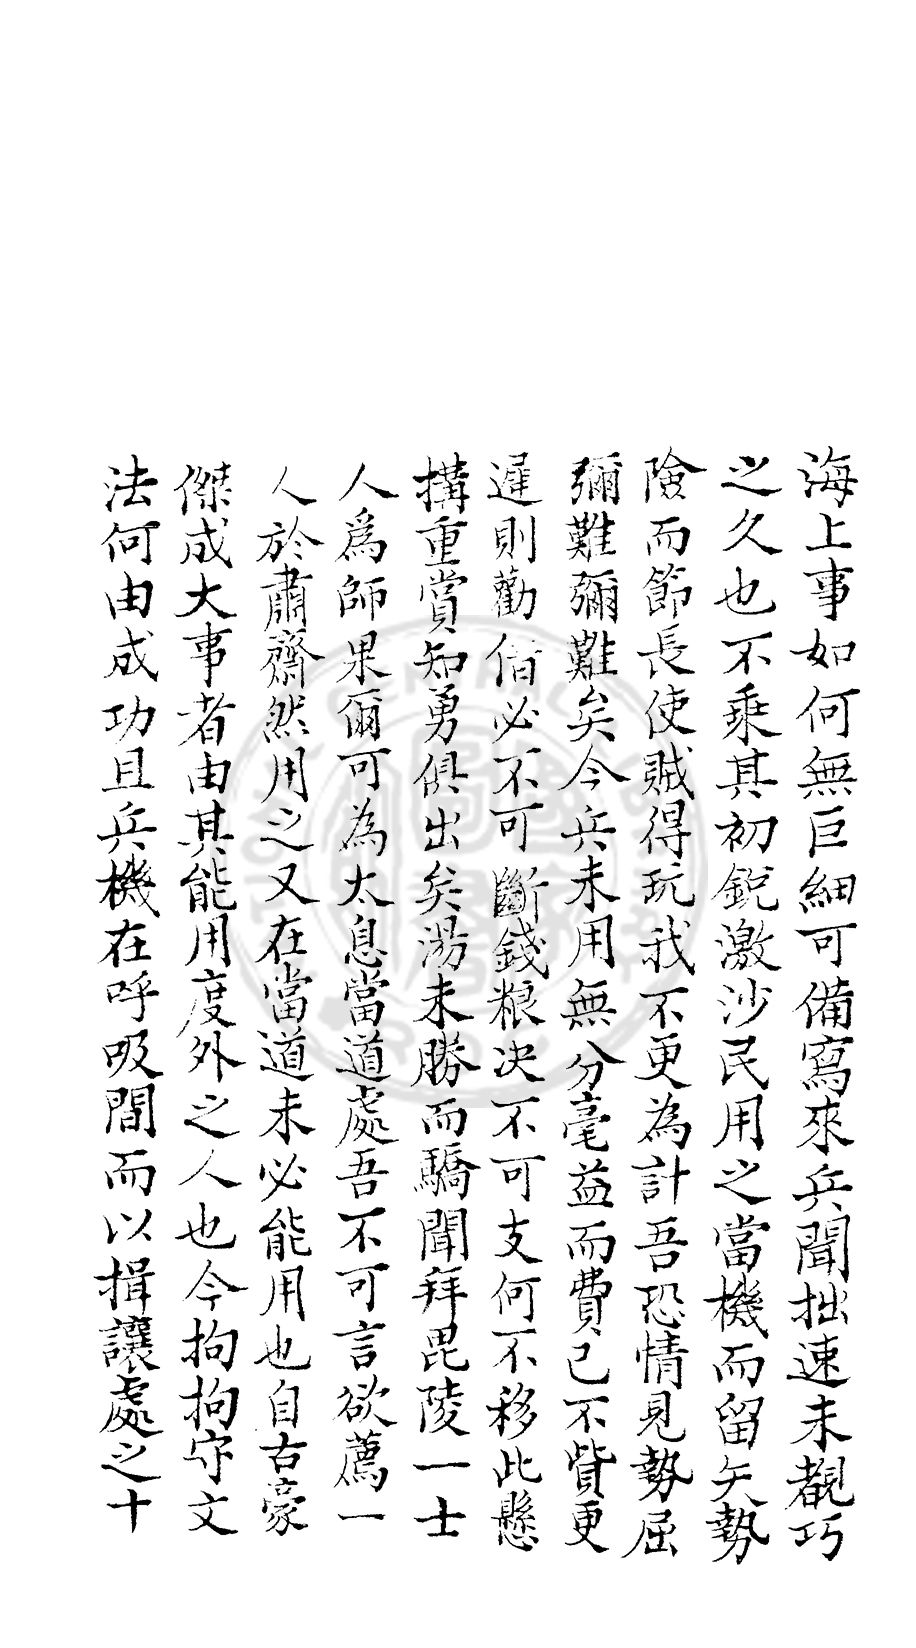 海上事如何無巨細可備寫來兵聞拙速未覩巧
之久也不乘其初銳激沙民用之當機而留矢勢
險而節長使賊得玩我不更為計吾恐情見勢屈
彌難彌難矣今兵未用無分毫益而費已不貲更
遲則勸借必不可斷錢粮决不可支何不移此懸
搆重賞知勇俱出矣湯未勝而驕聞拜毘陵一士
人爲師果爾可為太息當道處吾不可言欲薦一
人於肅齋然用之又在當道未必能用也自古豪
傑成大事者由其能用度外之人也今拘拘守文
法何由成功且兵機在呼吸間而以揖讓處之十